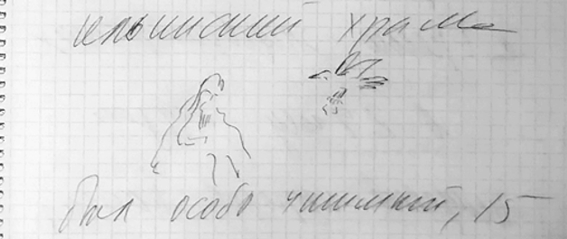 ильинский храм
был особо чтимый, 15